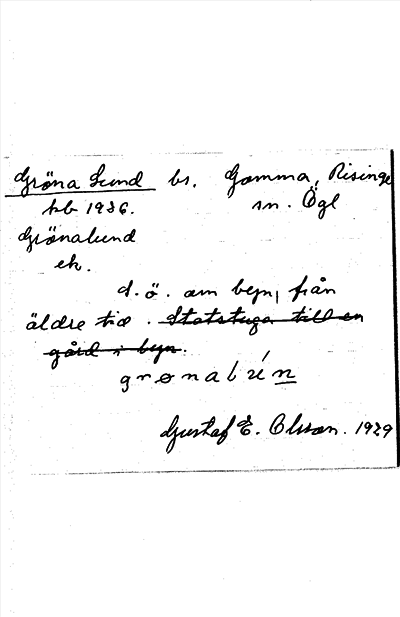 Gröna Lund bs. Gomma, Risinge
kb 1936. sn. Ögl
Grönalund
ek.
d. ö. om byn, från
äldre tid. Statstuga till en
gård i byn.
grønalún
Gustaf E. Olsson. 1929